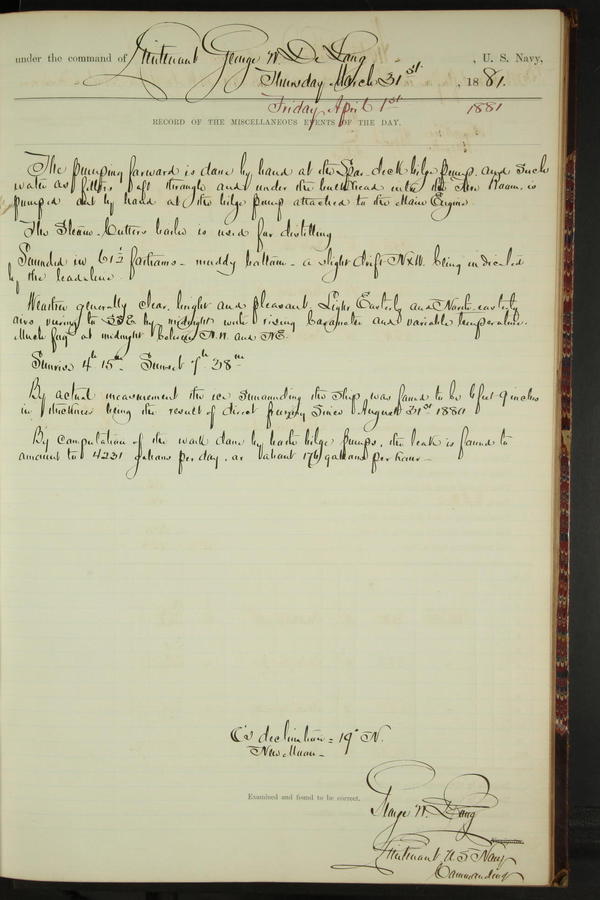 under the command of Lieutenant George W. De Long, U. S. Navy,
Thursday March 31st, 1881.
Friday April 1st 1881
RECORD OF THE MISCELLANEOUS EVENTS OF THE DAY.
The pumping forward is done by hand at the Spar-deck bilge pump. and such
water as filters aft through and under the bulkhead into the Fire Room is
pumped out by hand at the bilge pump attached to the Main Engine.
The Steam-Cutters boiler is used for distilling
Sounded in 61½ fathoms - muddy bottom - a slight drift N×W. being indicated
by the leadline
Weather generally clear, bright and pleasant. Light Easterly and North-easterly
airs veering to SSE by midnight with rising barometer and variable temperature.
Much fog at midnight between N.W. and NE.
Sunrise 4h 15m. Sunset 7h 38m
By actual measurement the ice surrounding the ship was found to be 6 feet 9 inches
in thickness being the result of direct freezing since August 31st 1880
By computation of the work done by both bilge pumps, the leak is found to
amount to 4231 gallons per day. or about 176 gallons per hour -
☾'s declination = 19° N.
New Moon -
Examined and found to be correct.
George W. De Long
Lieutenant U. S. Navy
Commanding